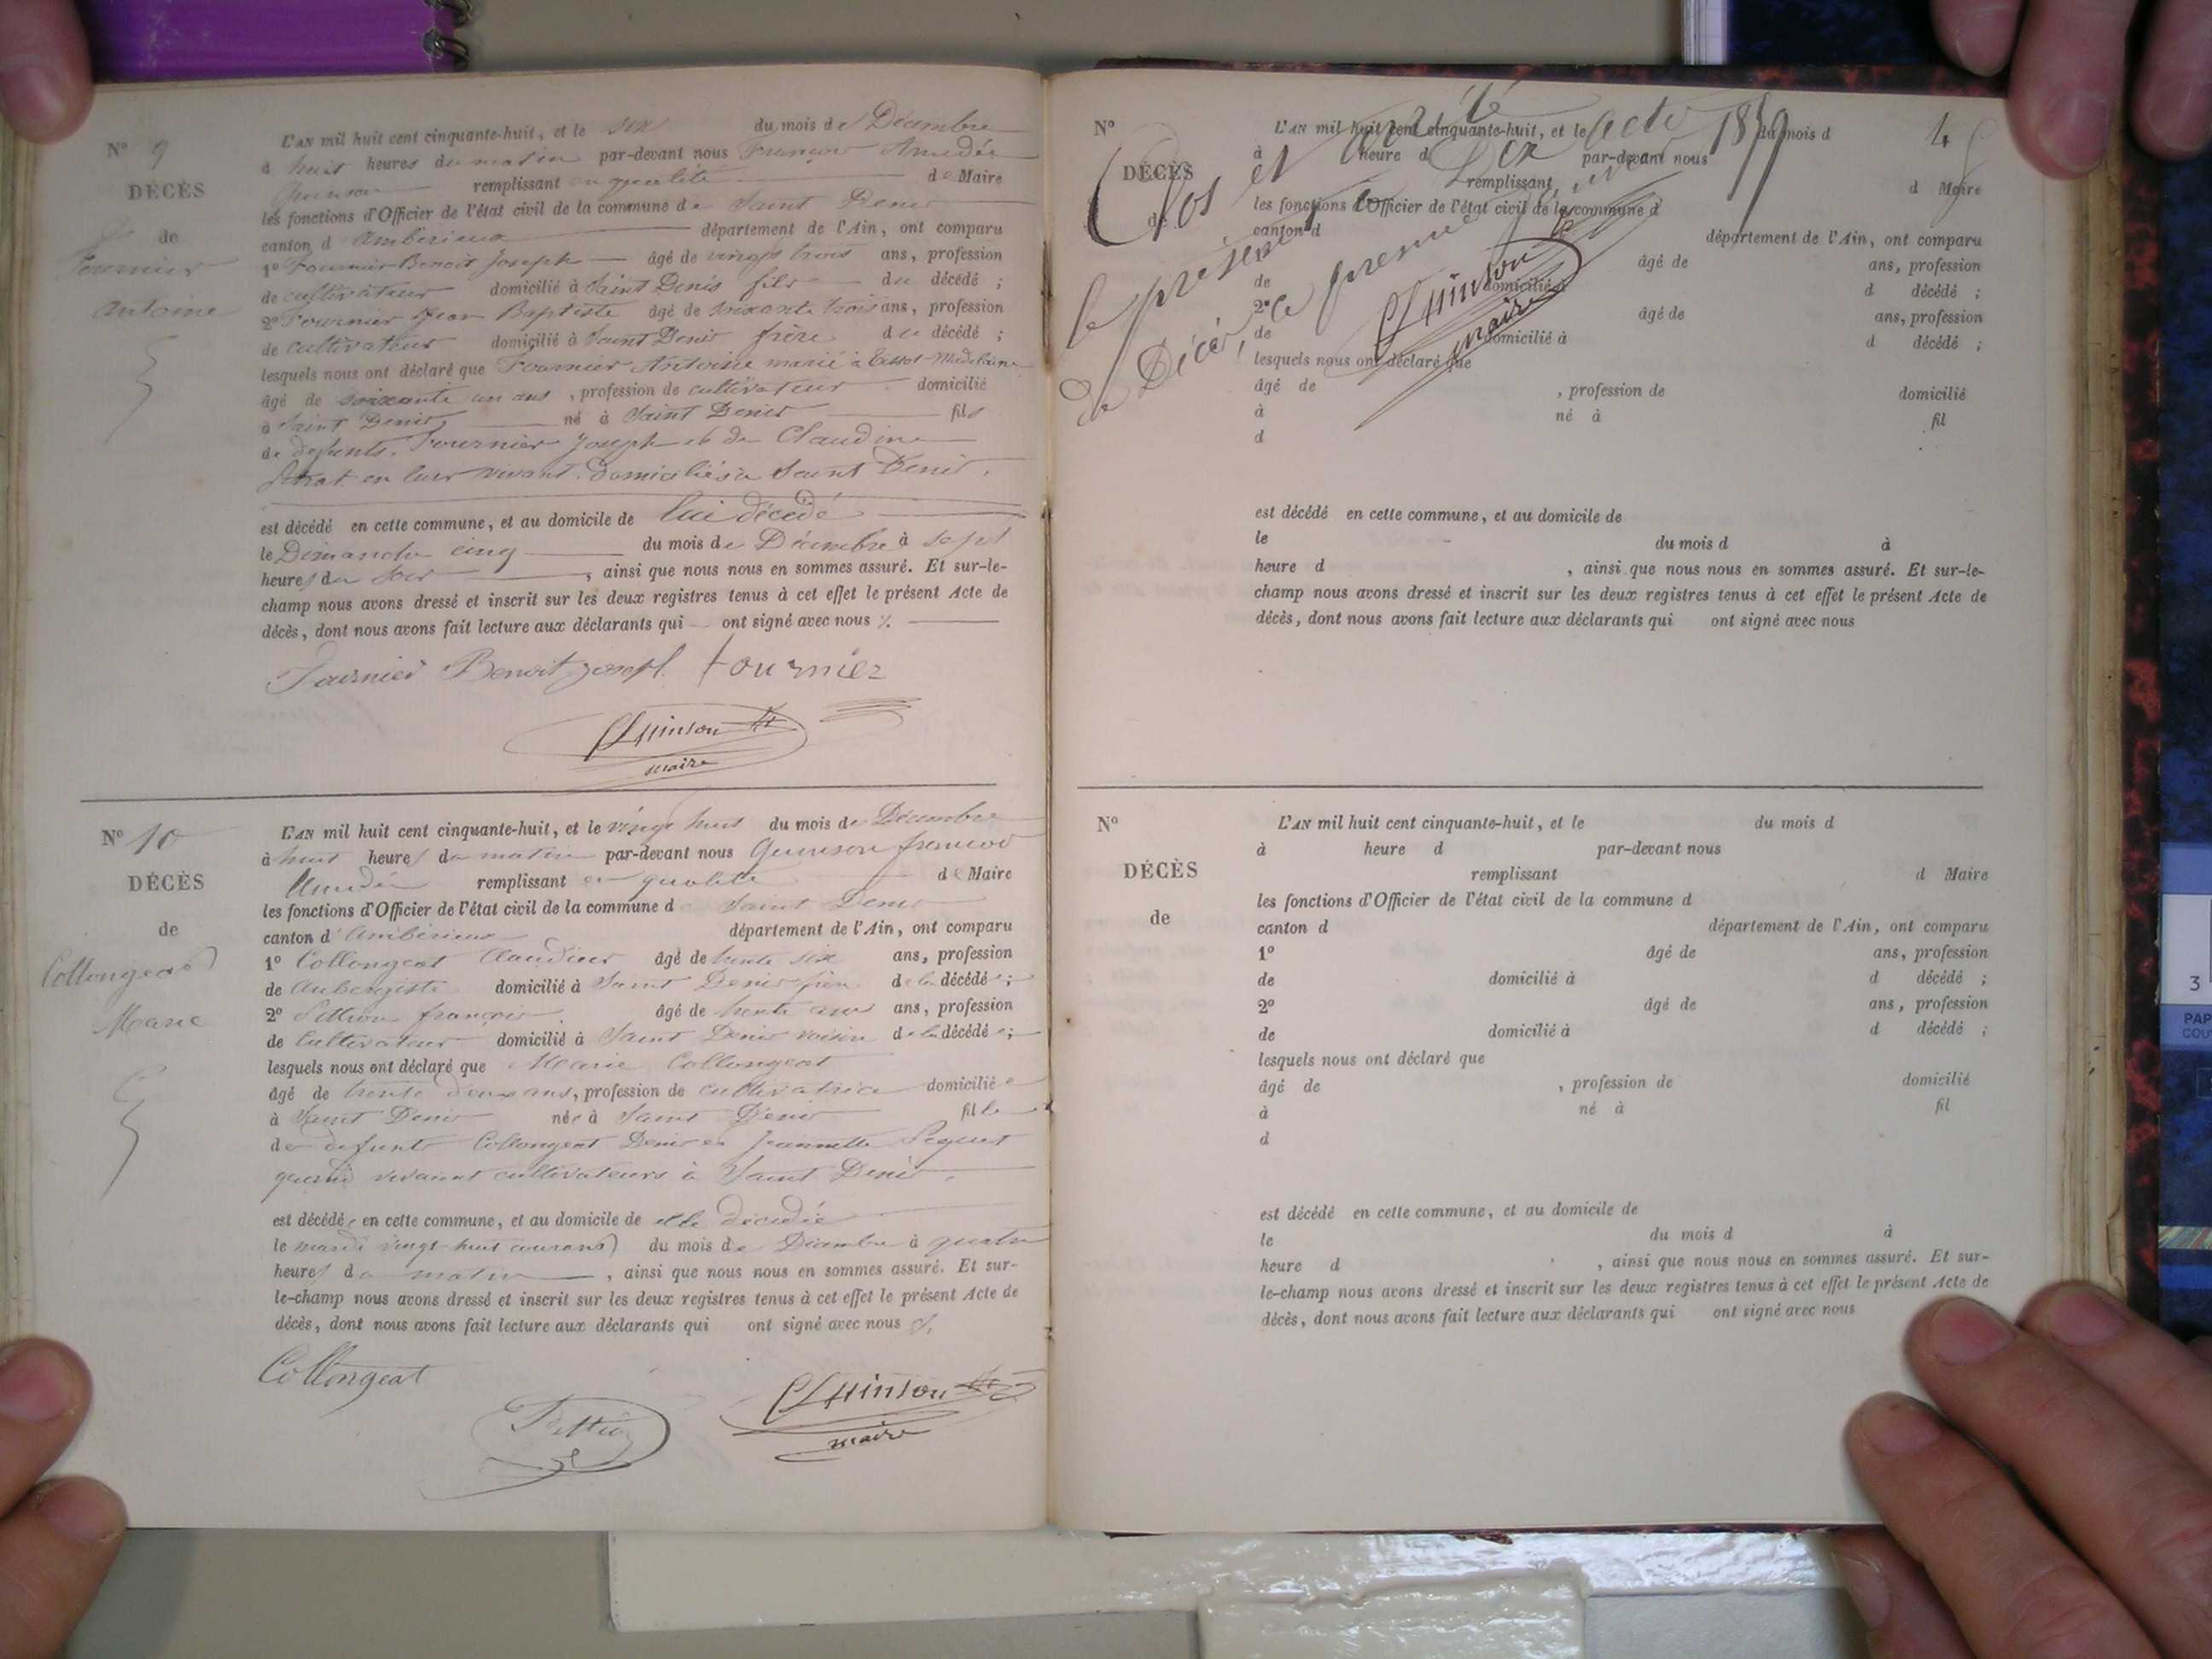 N° 9
DÉCÈS
de
Fournier
Antoine
L'AN mil huit cent cinquante-huit, et le six du mois de Décembre
à huit heures du matin par-devant nous François Amédée
Quinson remplissant en qualité de Maire
les fonctions d'Officier de l'état civil de la commune de Saint Denis
canton d'Ambérieux département de l'Ain, ont comparu
1° Fournier Benoit Joseph âgé de vingt trois ans, profession
de cultivateur domicilié à Saint Denis fils du décédé ;
2° Fournier Jean Baptiste âgé de soixante trois ans, profession
de cultivateur domicilié à Saint Denis frère du décédé ;
lesquels nous ont déclaré que Fournier Antoine marié à Madelaine
âgé de soixante un ans, profession de cultivateur domicilié
à Saint Denis né à Saint Denis fils
de defunts Fournier Joseph et de Claudine
en leur vivant domiciliés à Saint Denis.
est décédé en cette commune, et au domicile de lui décédé
le Dimanche cinq du mois de Décembre à sept
heures du soir, ainsi que nous nous en sommes assuré. Et sur-le-
champ nous avons dressé et inscrit sur les deux registres tenus à cet effet le présent Acte de
décès, dont nous avons fait lecture aux déclarants qui ont signé avec nous %.
Fournier Benoit Joseph fournier
Quinson
maire
N° 10
DÉCÈS
de
Collongeat
Marie
L'AN mil huit cent cinquante-huit, et le vingt huit du mois de Décembre
à huit heures du matin par-devant nous Quinson françois
Amédée remplissant en qualité de Maire
les fonctions d'Officier de l'état civil de la commune de Saint Denis
canton d'Ambérieux département de l'Ain, ont comparu
1° Collongeat Claudius âgé de trente six ans, profession
de Aubergiste domicilié à Saint Denis frère de la décédée ;
2° françois âgé de trente ans, profession
de Cultivateur domicilié à Saint Denis voisin de la décédée ;
lesquels nous ont déclaré que Marie Collongeat
âgé de trente deux ans, profession de cultivatrice domiciliée
à Saint Denis née à Saint Denis fille
de defunts Collongeat Denis et Jeannette
quand vivaient cultivateurs à Saint Denis.
est décédée en cette commune, et au domicile de elle décédée
le mardi vingt huit courant du mois de Décembre à quatre
heures du matin, ainsi que nous nous en sommes assuré. Et sur-
le-champ nous avons dressé et inscrit sur les deux registres tenus à cet effet le présent Acte de
décès, dont nous avons fait lecture aux déclarants qui ont signé avec nous
Collongeat
Quinson
maire
N°
DÉCÈS
de
L'AN mil huit cent cinquante-huit, et le du mois d
à heure d par-devant nous
remplissant d Maire
les fonctions d'Officier de l'état civil de la commune d
canton d département de l'Ain, ont comparu
âgé de ans, profession
de domicilié à d décédé ;
2° âgé de ans, profession
de domicilié à d décédé ;
lesquels nous ont déclaré que
âgé de , profession de domicilié
à né à fil
d
Clos et arrêté
le présent Dix acte
de Décès, le premier 1859
Quinson
maire
est décédé en cette commune, et au domicile de
le du mois d à
heure d , ainsi que nous nous en sommes assuré. Et sur-le-
champ nous avons dressé et inscrit sur les deux registres tenus à cet effet le présent Acte de
décès, dont nous avons fait lecture aux déclarants qui ont signé avec nous
N°
DÉCÈS
de
L'AN mil huit cent cinquante-huit, et le du mois d
à heure d par-devant nous
remplissant d Maire
les fonctions d'Officier de l'état civil de la commune d
canton d département de l'Ain, ont comparu
1° âgé de ans, profession
de domicilié à d décédé ;
2° âgé de ans, profession
de domicilié à d décédé ;
lesquels nous ont déclaré que
âgé de , profession de domicilié
à né à fil
d
est décédé en cette commune, et au domicile de
le du mois d à
heure d , ainsi que nous nous en sommes assuré. Et sur-
le-champ nous avons dressé et inscrit sur les deux registres tenus à cet effet le présent Acte de
décès, dont nous avons fait lecture aux déclarants qui ont signé avec nous
3
PAP
COU